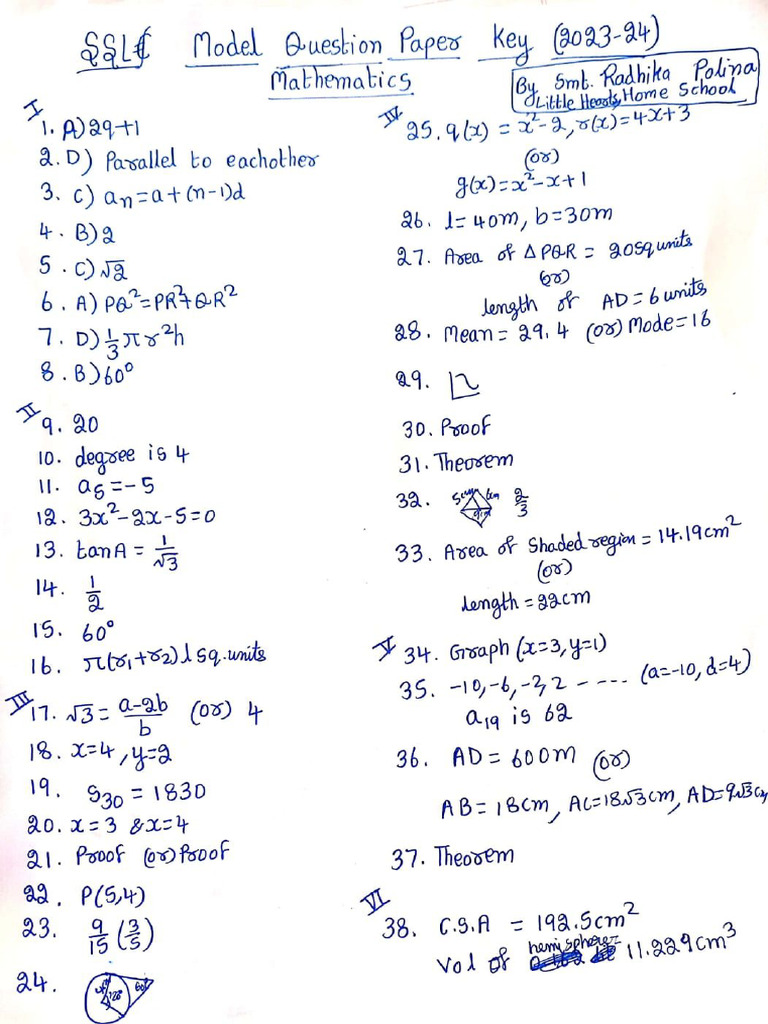 SSLC Model Question Paper Key (2023-24)
Mathematics
By Smt. Radhika Polina
Little Hearts Home School
I
1. A) 2q+1
2. D) Parallel to eachother
3. C) aₙ=a+(n-1)d
4. B) 2
5. C) √2
6. A) PQ²=PR²+QR²
7. D) 1/3 πr²h
8. B) 60°
II
9. 20
10. degree is 4
11. a₅=-5
12. 3x²-2x-5=0
13. tanA = 1/√3
14. 1/2
15. 60°
16. π(r₁+r₂)l sq.units
III
17. √3 = a-2b/b (or) 4
18. x=4, y=2
19. S₃₀ = 1830
20. x=3 & x=4
21. Proof (or) Proof
22. P(5,4)
23. 9/15 (3/5)
24. 120° 60°
IV
25. q(x) = x²-2, r(x)=4x+3
(or)
g(x)=x²-x+1
26. l=40m, b=30m
27. Area of △PQR = 20sq units
(or)
length of AD=6 units
28. Mean = 29.4 (or) Mode=16
29.
30. Proof
31. Theorem
32. 5cm 2/3
33. Area of Shaded region = 14.19cm²
(or)
length = 22cm
V
34. Graph (x=3, y=1)
35. -10, -6, -2, 2 ------ (a=-10, d=4)
a₁₉ is 62
36. AD = 600m (or)
AB = 18cm, AC=18√3cm, AD=9√3cm
37. Theorem
VI
38. C.S.A = 192.5cm²
Vol of hemisphere 11.229cm³